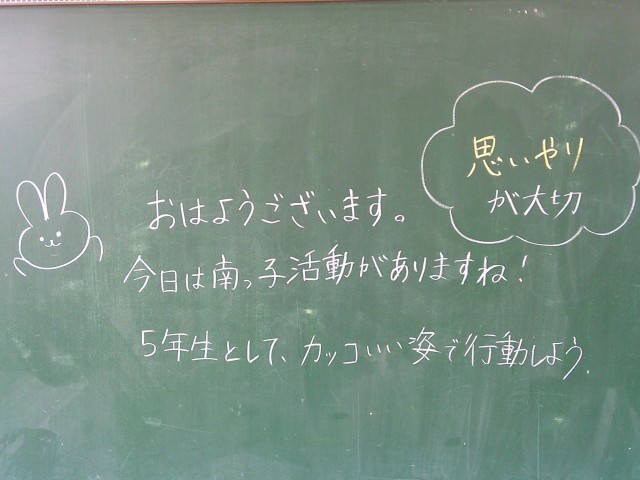 おはようございます。
今日は南っ子活動がありますね!
5年生として、カッコいい姿で行動しよう.
思いやり
が大切